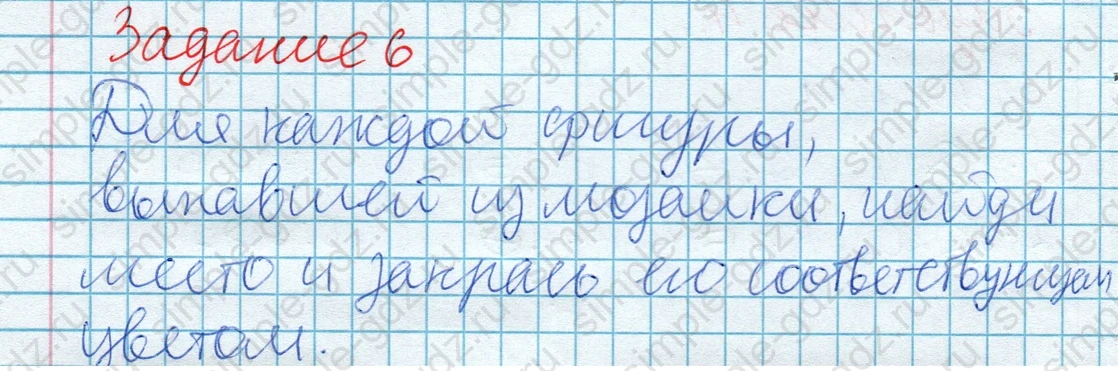 Задание 6
Для каждой фигуры,
выпавшей из мозаики, найди
место и закрась его соответствующим
цветом.